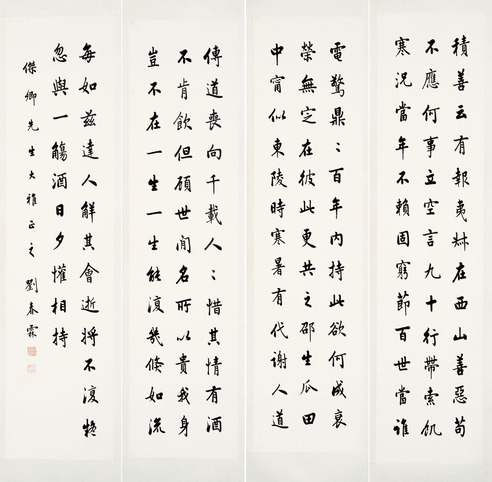 積善云有報夷叔在西山善惡苟
不應何事立空言九十行帶索飢
寒況當年不賴固窮節百世當誰
電驚鼎〻百年內持此欲何成衰
榮無定在彼此更共之邵生瓜田
中甯似東陵時寒暑有代謝人道
傳道喪向千載人〻惜其情有酒
不肯飲但顧世間名所以貴我身
豈不在一生一生能復幾倐如流
每如茲達人解其會逝將不復疑
忽與一觴酒日夕懽相持
傑卿先生大雅正之 劉春霖